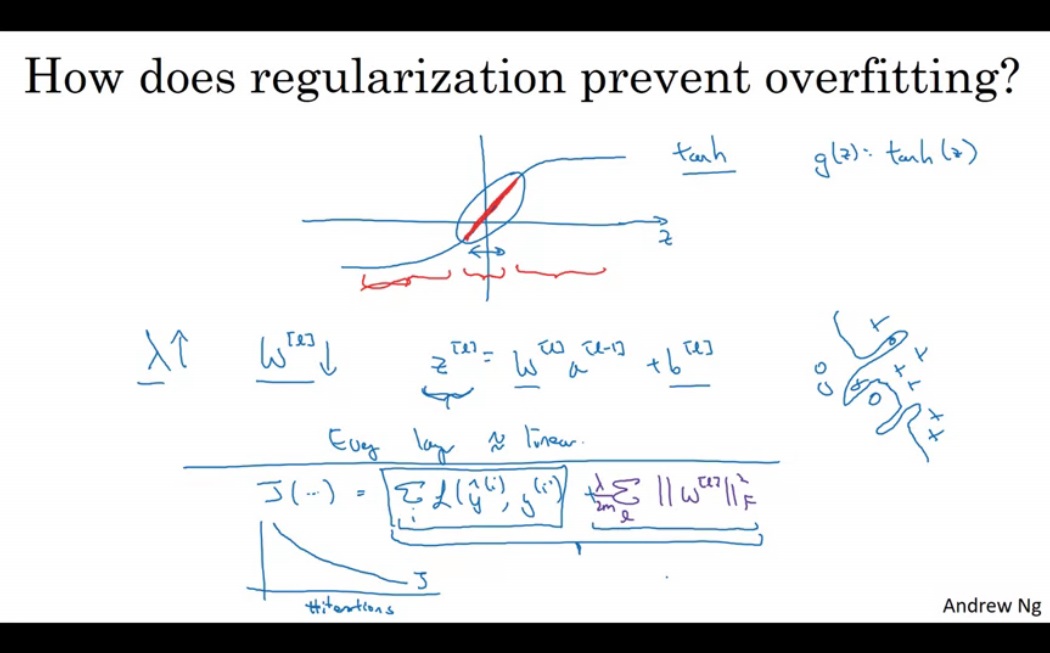 How does regularization prevent overfitting?
tanh
g(z): tanh(z)
z
λ↑
W^[l]↓
z^[l] = W^[l] a^[l-1] + b^[l]
Every layer ≈ linear.
J(...) = Σ_i L(ŷ^(i), y^(i)) + λ/2m Σ_l ||W^[l]||²_F
J
#iterations
Andrew Ng